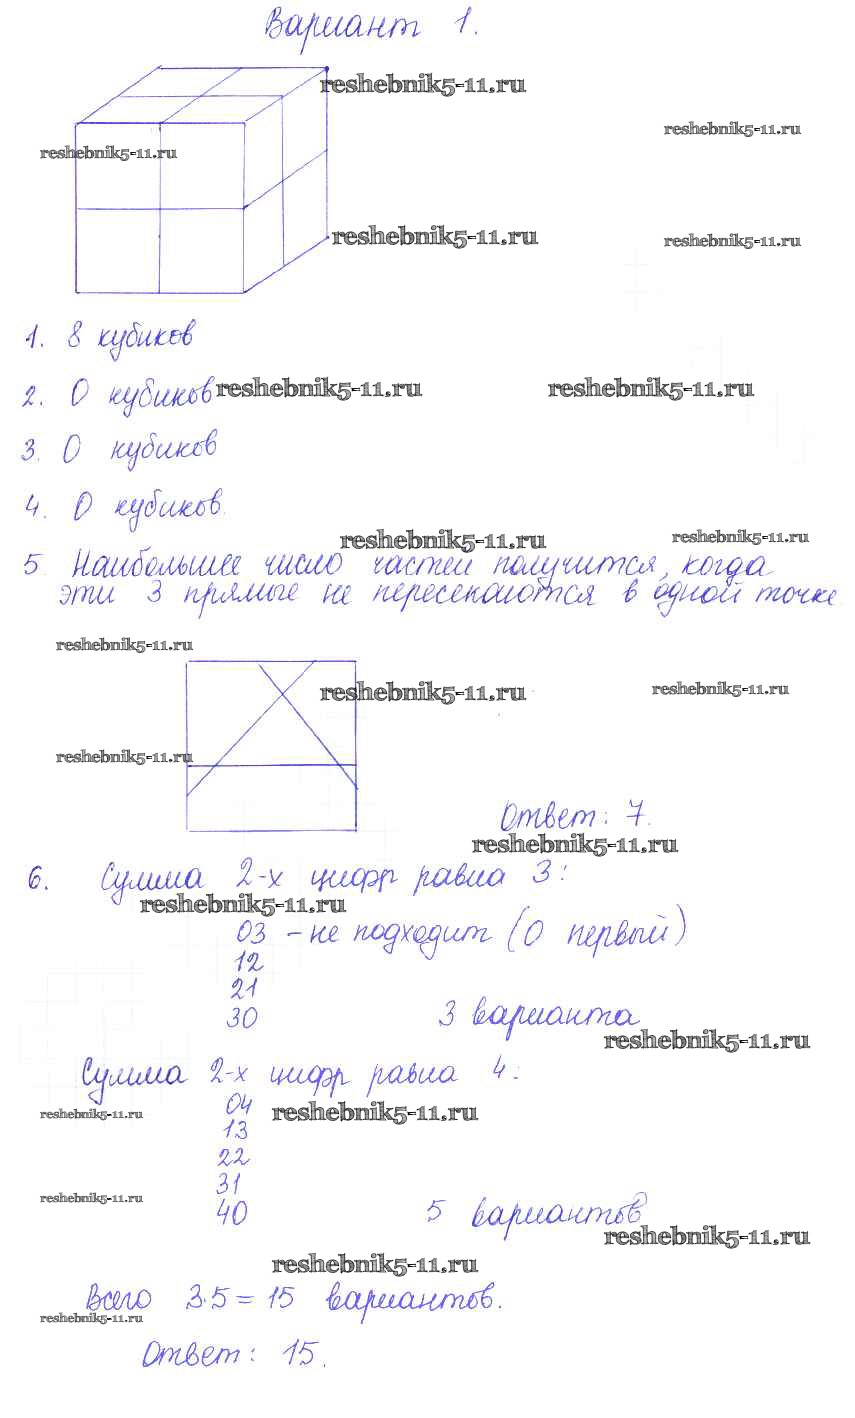 Вариант 1.
reshebnik5-11.ru
reshebnik5-11.ru
reshebnik5-11.ru
reshebnik5-11.ru
reshebnik5-11.ru
1. 8 кубиков
2. 0 кубиков reshebnik5-11.ru reshebnik5-11.ru
3. 0 кубиков
4. 0 кубиков.
reshebnik5-11.ru reshebnik5-11.ru
5. Наибольшее число частей получится, когда
эти 3 прямые не пересекаются в одной точке.
reshebnik5-11.ru
reshebnik5-11.ru reshebnik5-11.ru
reshebnik5-11.ru
Ответ: 7.
reshebnik5-11.ru
6. Сумма 2-х цифр равна 3:
reshebnik5-11.ru
03 – не подходит (0 первый)
12
21
30 3 варианта
reshebnik5-11.ru
Сумма 2-х цифр равна 4:
04
reshebnik5-11.ru reshebnik5-11.ru
13
22
31
reshebnik5-11.ru
40 5 вариантов
reshebnik5-11.ru
reshebnik5-11.ru
Всего 3·5 = 15 вариантов.
reshebnik5-11.ru
Ответ: 15.